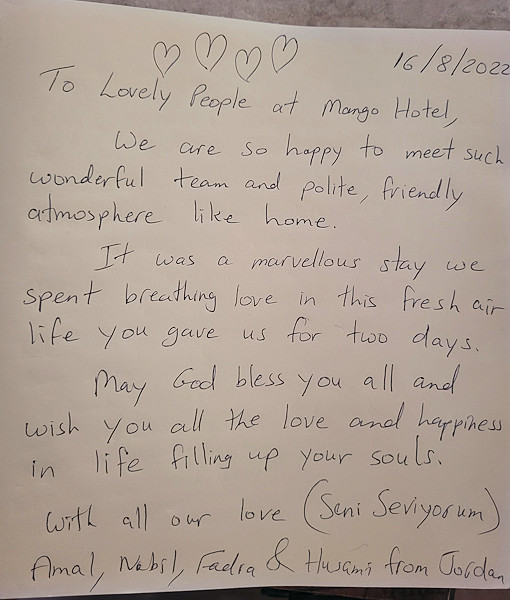 16/8/2022
To Lovely People at Mango Hotel,
We are so happy to meet such
wonderful team and polite, friendly
atmosphere like home.
It was a marvellous stay we
spent breathing love in this fresh air
life you gave us for two days.
May God bless you all and
wish you all the love and happiness
in life filling up your souls.
with all our love (Seni Seviyorum)
Amal, Nabil, Fadia & Husami from Jordan